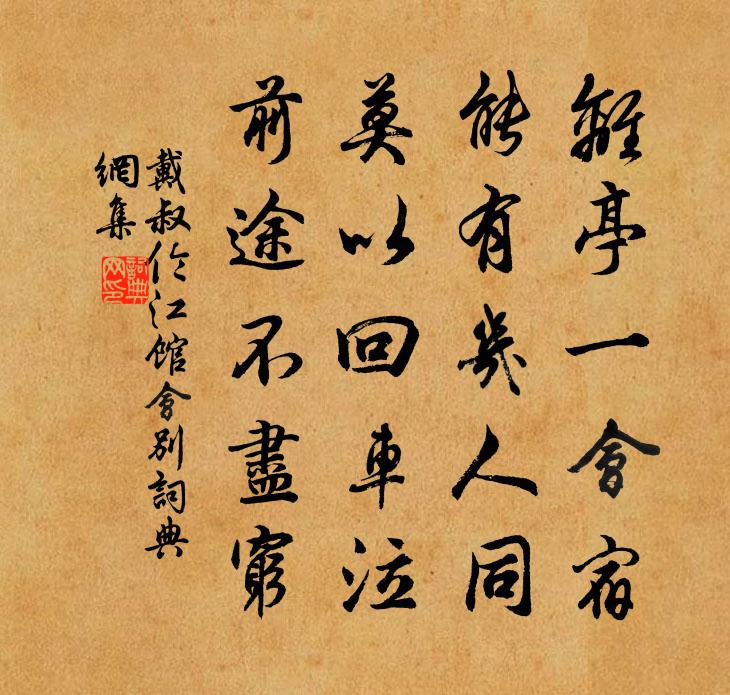 離亭一會宿
能有幾人同
莫以回車泣
前途不盡窮
戴叔倫江館會別詞典
網集
詞典
网印